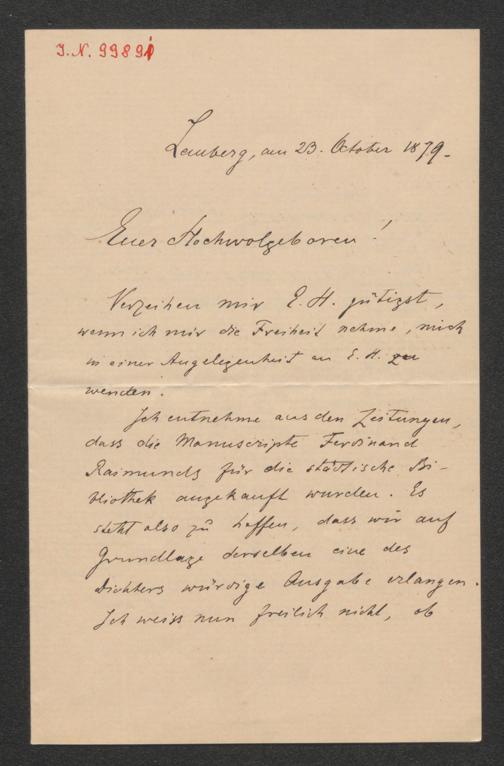 J.N. 99891
Lemberg, am 23. October 1879.
Euer Hochwolgeboren!
Verzeihen mir E. H. gütigst,
wenn ich mir die Freiheit nehme, mich
in einer Angelegenheit an E. H. zu
wenden.
Ich entnehme aus den Zeitungen,
dass die Manuscripte Ferdinand
Raimunds für die städtische Bi-
bliothek angekauft wurden. Es
steht also zu hoffen, dass wir auf
Grundlage derselben eine des
Dichters würdige Ausgabe erlangen.
Ich weiss nun freilich nicht, ob